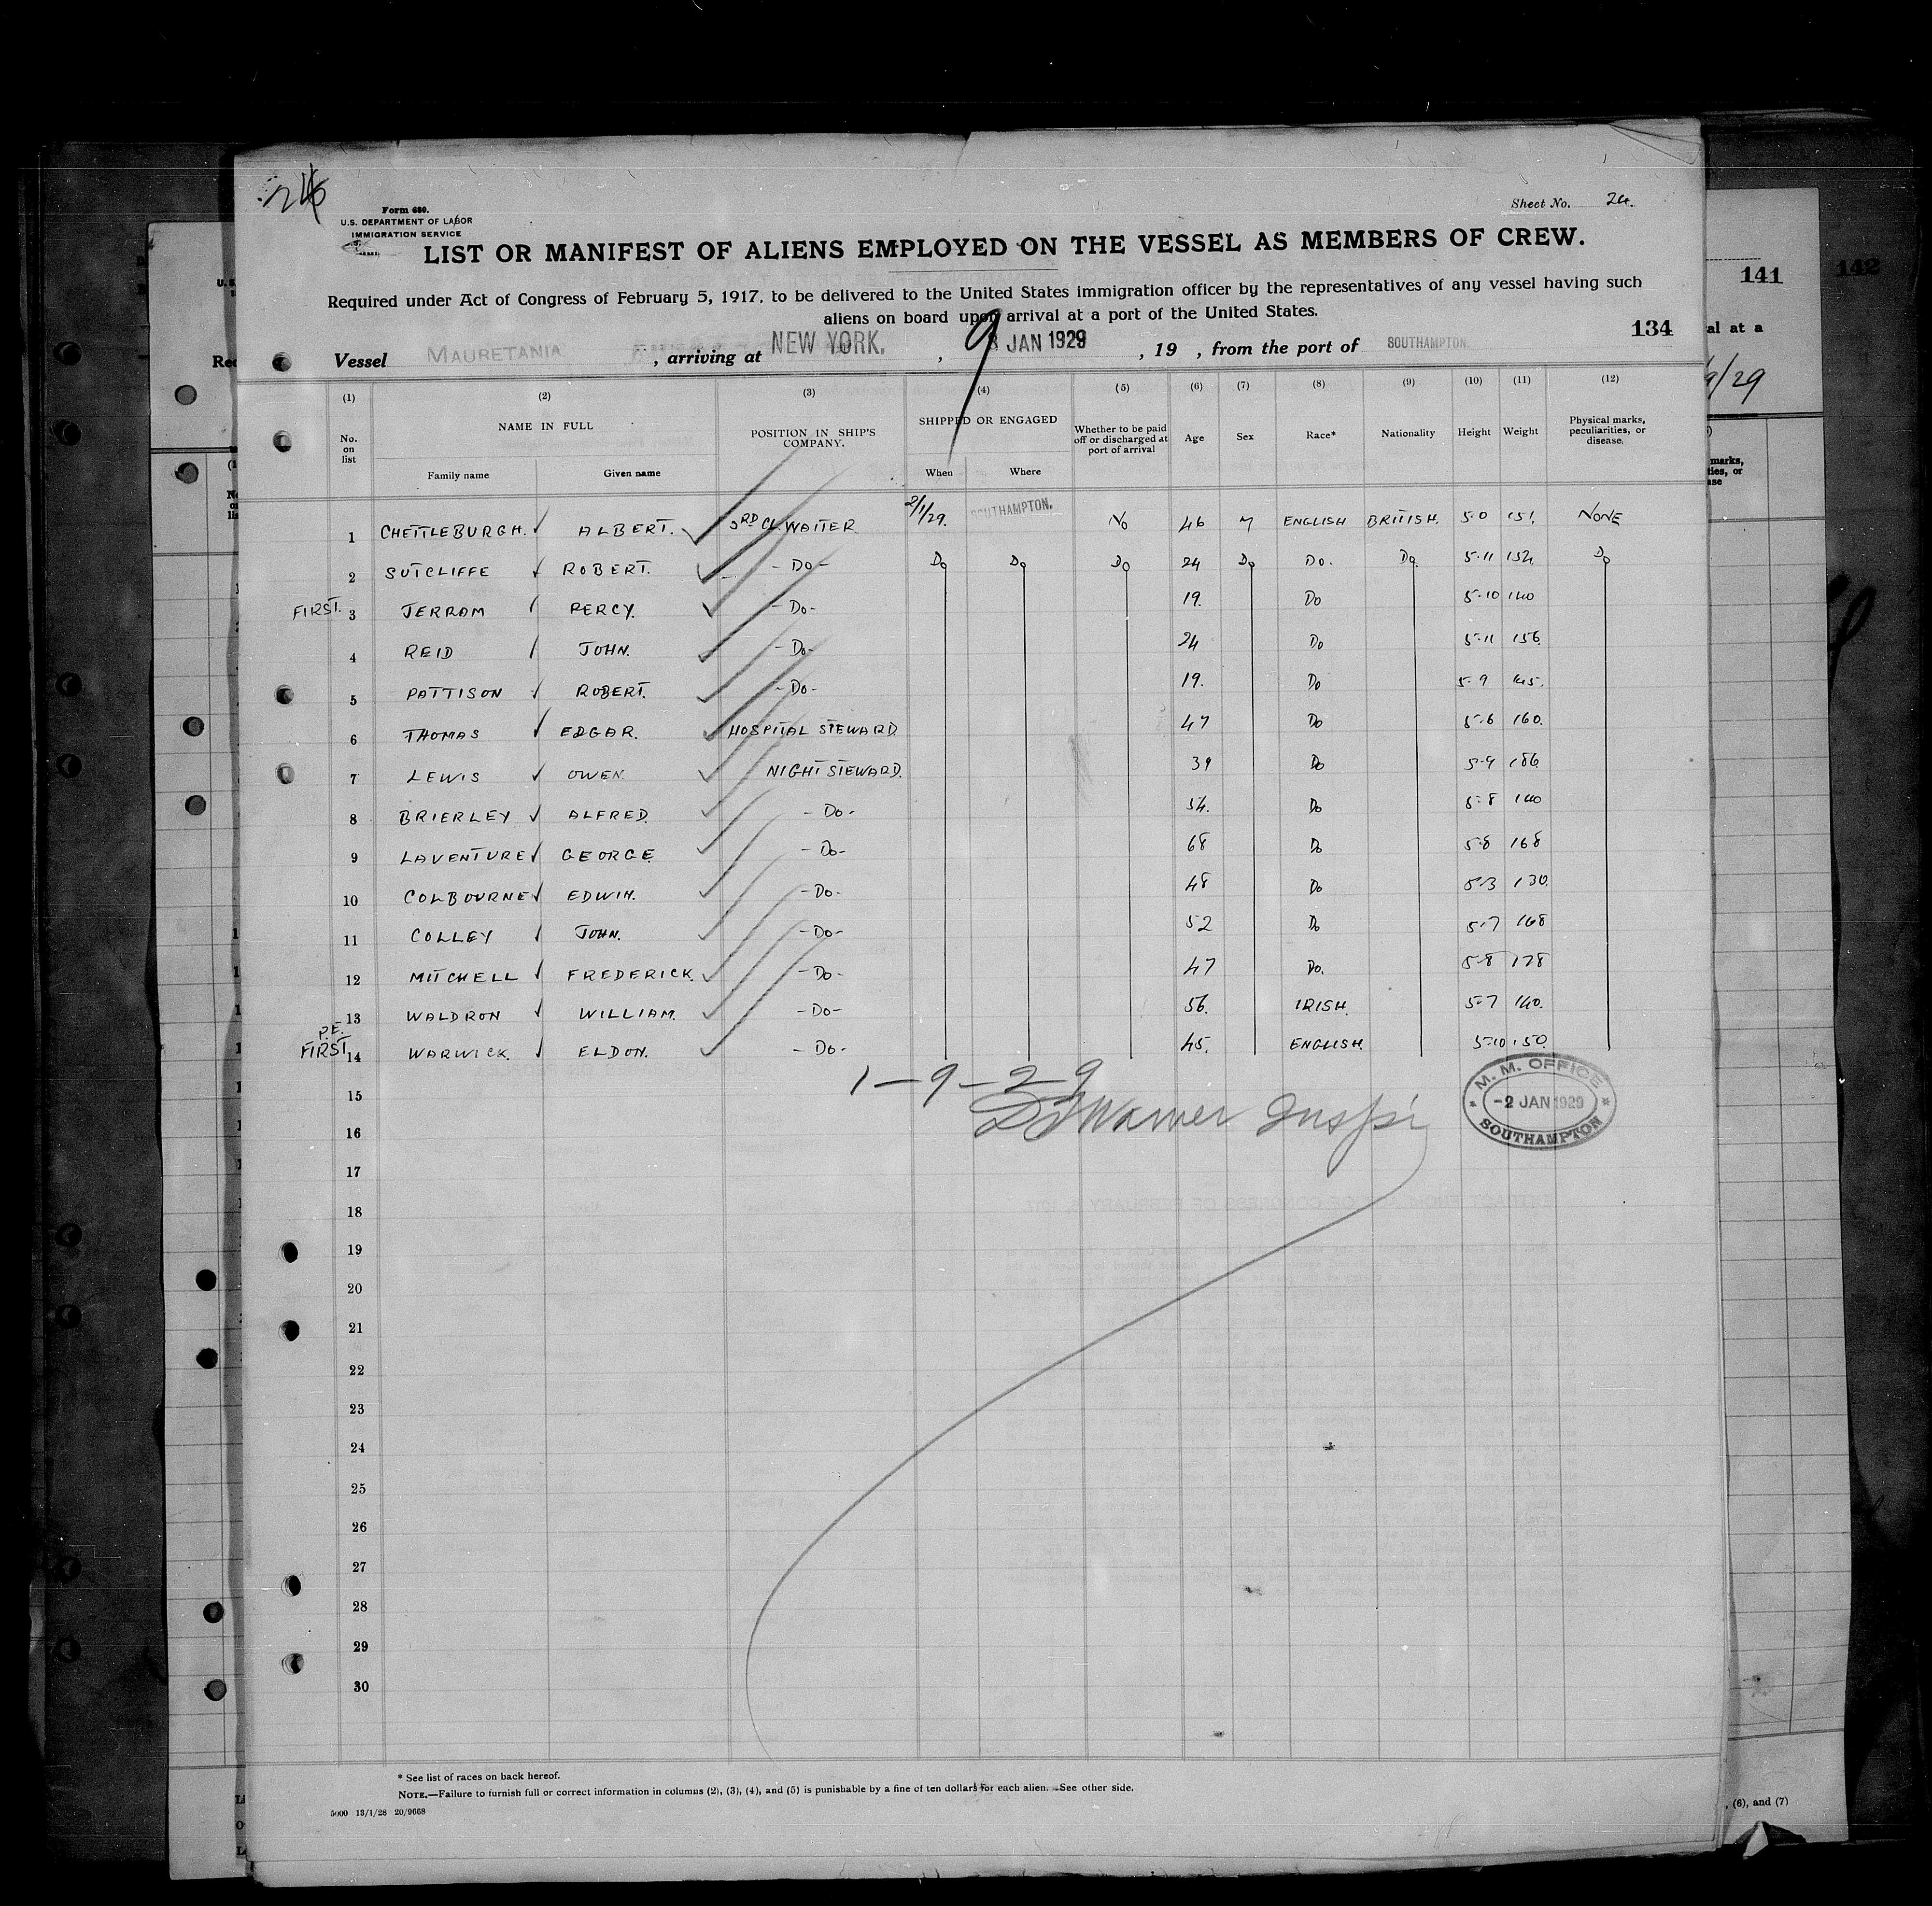 Sheet No. 24.
Form 680.
U.S. DEPARTMENT OF LABOR
IMMIGRATION SERVICE
LIST OR MANIFEST OF ALIENS EMPLOYED ON THE VESSEL AS MEMBERS OF CREW.
Required under Act of Congress of February 5, 1917, to be delivered to the United States immigration officer by the representatives of any vessel having such
aliens on board upon arrival at a port of the United States.
134
141
142
al at a
9/29
Vessel MAURETANIA, arriving at NEW YORK., 9 JAN 1929, 19 , from the port of SOUTHAMPTON.
(1) (2) (3) (4) (5) (6) (7) (8) (9) (10) (11) (12)
No. on list NAME IN FULL POSITION IN SHIP'S COMPANY. SHIPPED OR ENGAGED Whether to be paid off or discharged at port of arrival Age Sex Race* Nationality Height Weight Physical marks, peculiarities, or disease.
Family name Given name When Where
1 CHETTLEBURGH. ALBERT. 3RD CL. WAITER. 2/1/29. SOUTHAMPTON. No 46 M ENGLISH BRITISH. 5.0 151. NONE
2 SUTCLIFFE ROBERT. - Do - Do Do Do 24 Do Do. Do. 5.11 134 Do
FIRST. 3 JERRAM PERCY. - Do - 19. Do 5.10 140
4 REID JOHN. - Do - 24 Do 5.11 156.
5 PATTISON ROBERT. - Do - 19. Do 5.9 145.
6 THOMAS EDGAR. HOSPITAL STEWARD. 47 Do 5.6 160.
7 LEWIS OWEN. NIGHT STEWARD. 39 Do 5.9 186.
8 BRIERLEY ALFRED. - Do - 54. Do 5.8 140
9 LAVENTURE GEORGE. - Do - 68 Do 5.8 168
10 COLBOURNE EDWIN. - Do - 48 Do 5.3 130.
11 COLLEY JOHN. - Do - 52 Do 5.7 168
12 MITCHELL FREDERICK. - Do - 47 Do. 5.8 178
13 WALDRON WILLIAM. - Do - 56. IRISH. 5.7 140.
P.E.
FIRST. 14 WARWICK. ELDON. - Do - 45. ENGLISH. 5.10 150.
1-9-29
Warner Inspr
M. M. OFFICE
-2 JAN 1929
SOUTHAMPTON
15
16
17
18
19
20
21
22
23
24
25
26
27
28
29
30
* See list of races on back hereof.
NOTE.—Failure to furnish full or correct information in columns (2), (3), (4), and (5) is punishable by a fine of ten dollars for each alien. —See other side.
5000 13/1/28 20/9668
, (6), and (7)